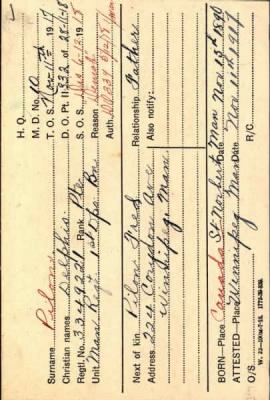 H. Q.
M. D. No. 10
T. O. S. Nov. 11th 1917
D. O. Pt. II 332 of 28-11-18
S. O. S. 6-12-1918
Reason
Auth. DO 339 6/12/18
Surname Pilon
Christian names Delphis
Regtl. No. 2129221 Rank Pte
Unit Man. Regt. 1st Dps. Bn.
Next of kin Pilon Fred Relationship Father
Address 224 Corydon Ave Also notify:
Winnipeg Man.
BORN—Place Canada St Norbert Man Date Nov 13th 1890
ATTESTED—Place Winnipeg Man Date Nov 11th 1917
O/S R/C